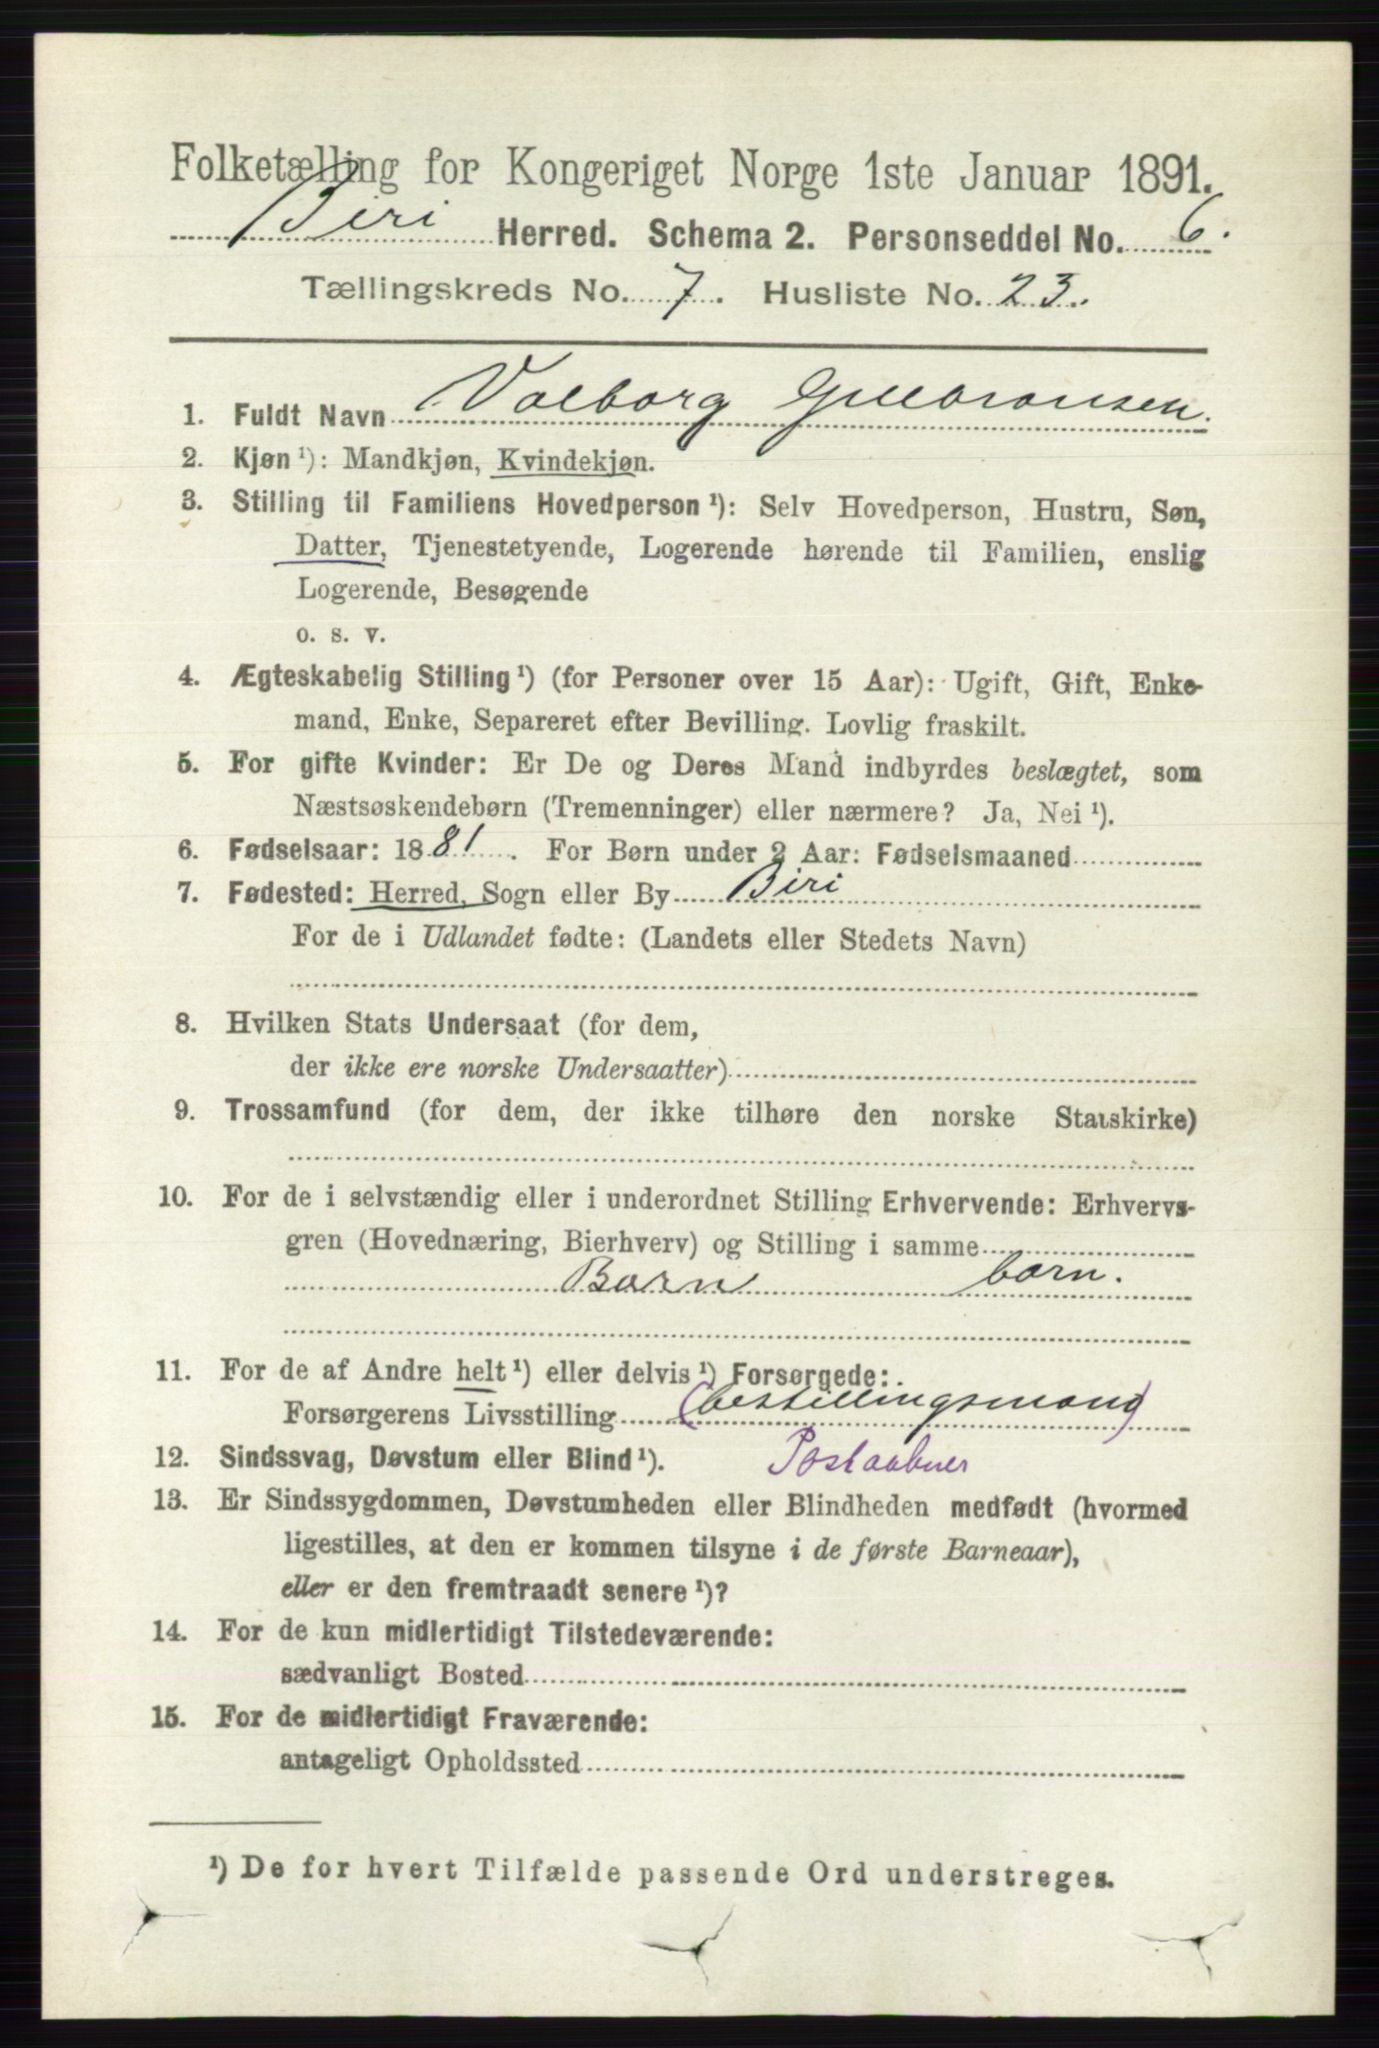 Folketælling for Kongeriget Norge 1ste Januar 1891.
Biri Herred. Schema 2. Personseddel No. 6.
Tællingskreds No. 7. Husliste No. 23.
1. Fuldt Navn Valborg Gulbransen.
2. Kjøn ¹): Mandkjøn, Kvindekjøn.
3. Stilling til Familiens Hovedperson ¹): Selv Hovedperson, Hustru, Søn,
Datter, Tjenestetyende, Logerende hørende til Familien, enslig
Logerende, Besøgende
o. s. v.
4. Ægteskabelig Stilling ¹) (for Personer over 15 Aar): Ugift, Gift, Enke-
mand, Enke, Separeret efter Bevilling. Lovlig fraskilt.
5. For gifte Kvinder: Er De og Deres Mand indbyrdes beslægtet, som
Næstsøskendebørn (Tremenninger) eller nærmere? Ja, Nei ¹).
6. Fødselsaar: 1881. For Børn under 2 Aar: Fødselsmaaned
7. Fødested: Herred, Sogn eller By Biri
For de i Udlandet fødte: (Landets eller Stedets Navn)
8. Hvilken Stats Undersaat (for dem,
der ikke ere norske Undersaatter)
9. Trossamfund (for dem, der ikke tilhøre den norske Statskirke)
10. For de i selvstændig eller i underordnet Stilling Erhvervende: Erhvervs-
gren (Hovednæring, Bierhverv) og Stilling i samme
Barn barn.
11. For de af Andre helt ¹) eller delvis ¹) Forsørgede:
Forsørgerens Livsstilling (bestillingsmand)
12. Sindssvag, Døvstum eller Blind ¹). Postaabner
13. Er Sindssygdommen, Døvstumheden eller Blindheden medfødt (hvormed
ligestilles, at den er kommen tilsyne i de første Barneaar),
eller er den fremtraadt senere ¹)?
14. For de kun midlertidigt Tilstedeværende:
sædvanligt Bosted
15. For de midlertidigt Fraværende:
antageligt Opholdssted
¹) De for hvert Tilfælde passende Ord understreges.